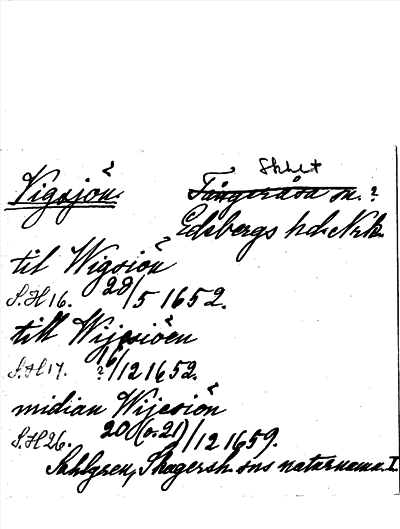 Skht
Vigsjön. Tångeråsa sn. ?
Edsbergs hd. Nrk.
til Wigsiön
S.H 16. 28/5 1652.
till Wijesiöen
S.H 17. ? 16/12 1652.
midian Wijesiön
S.H 26. 20 (o. 21)/12 1659.
Sahlgren, Skagersh. sns naturnamn. I.